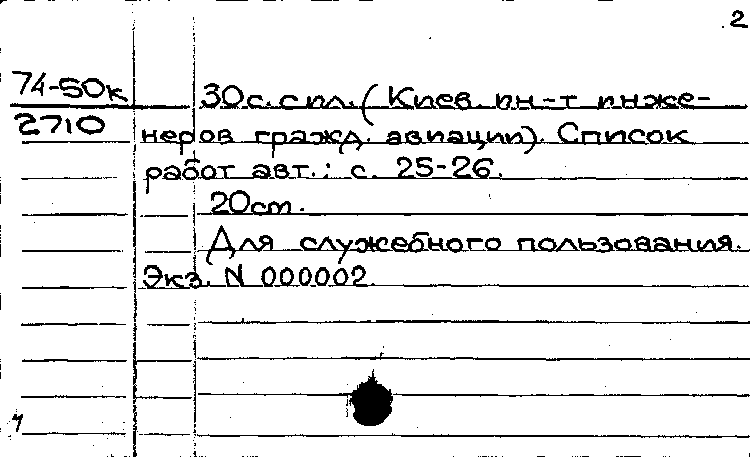 2
74-50к 30с. с ил. (Киев. ин-т инже-
2710 неров гражд. авиации). Список
работ авт.: с. 25-26.
20см.
Для служебного пользования.
Экз. N 000002.